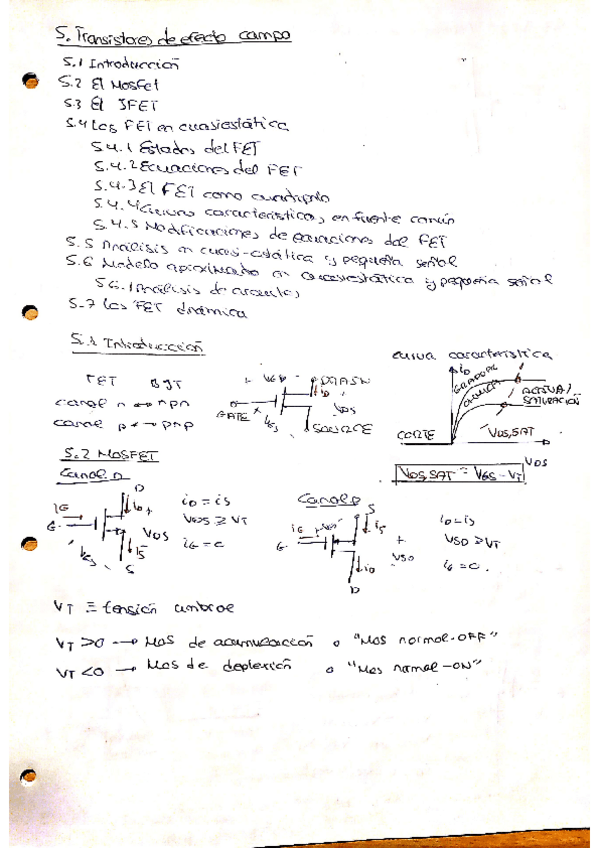 5. Transistores de efecto campo
5.1 Introducción
5.2 El Mosfet
5.3 El JFET
5.4 Los FET en cuasiestática
5.4.1 Estados del FET
5.4.2 Ecuaciones del FET
5.4.3 El FET como cuadripolo
5.4.4 Curvas características en fuente común
5.4.5 Modificaciones de ecuaciones del FET
5.5 Análisis en cuasi-estática y pequeña señal
5.6 Modelo aproximado en cuasiestática y pequeña señal
5.6.1 Análisis de circuitos
5.7 Los FET dinámica
5.1 Introducción
FET BJT
canal n ↔ npn
canal p ↔ pnp
+ VGD - DRAIN
iD
GATE + VGS VDS
SOURCE
curva característica
iD
GRADUAL
OHMICA
ACTIVA/
SATURACIÓN
CORTE
VDS,SAT
VDS
VDS,SAT = VGS - VT
5.2 MOSFET
Canal n
D
iG iD +
G VDS
VGS iS
S
iD = iS
VGS ≥ VT
iG = 0
Canal p
S
iG iS
G +
VSD
iD
D
iD = iS
VSD ≥ VT
iG = 0.
VT ≡ tensión umbral
VT >0 → Mos de acumulación o "Mos normal-OFF"
VT <0 → Mos de deplexión o "Mos normal-ON"